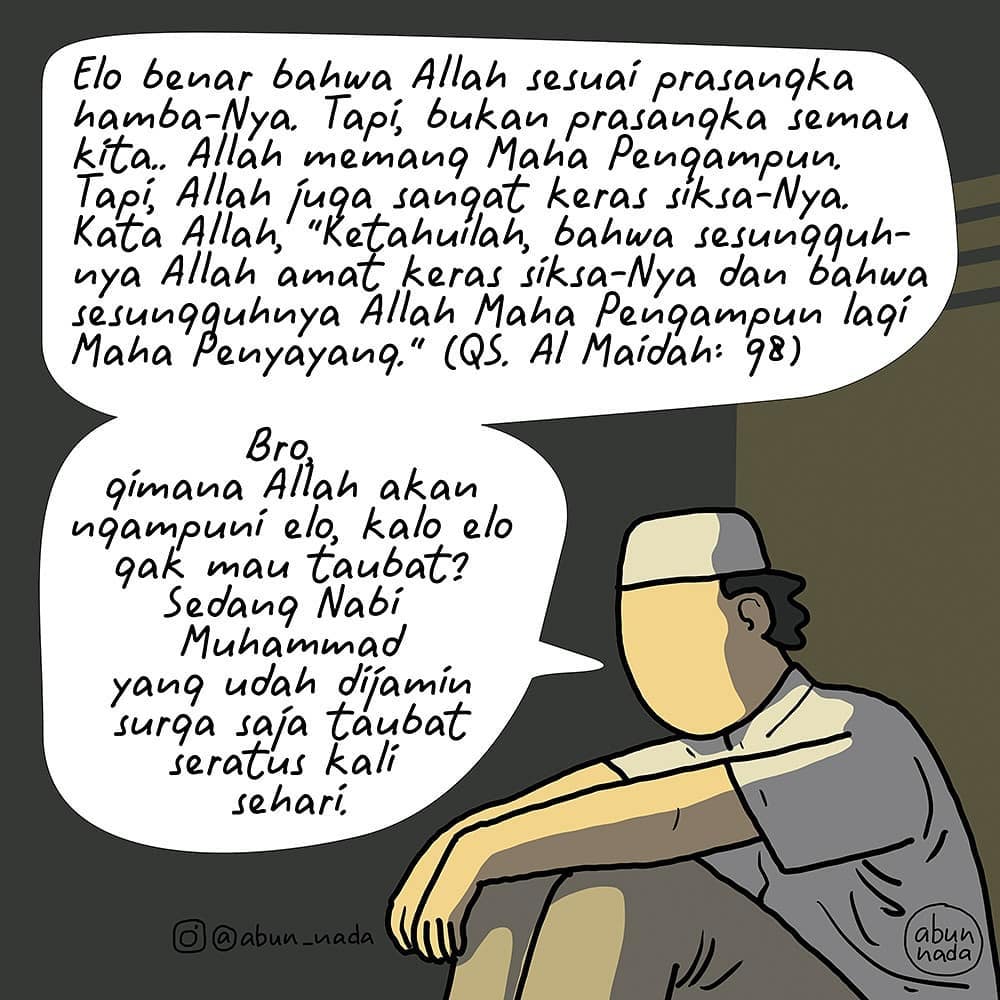 Elo benar bahwa Allah sesuai prasangka
hamba-Nya. Tapi, bukan prasangka semau
kita.. Allah memang Maha Pengampun.
Tapi, Allah juga sangat keras siksa-Nya.
Kata Allah, "Ketahuilah, bahwa sesungguh-
nya Allah amat keras siksa-Nya dan bahwa
sesungguhnya Allah Maha Pengampun lagi
Maha Penyayang." (QS. Al Maidah: 98)
Bro,
gimana Allah akan
ngampuni elo, kalo elo
gak mau taubat?
Sedang Nabi
Muhammad
yang udah dijamin
surga saja taubat
seratus kali
sehari.
@abun_nada
abun
nada